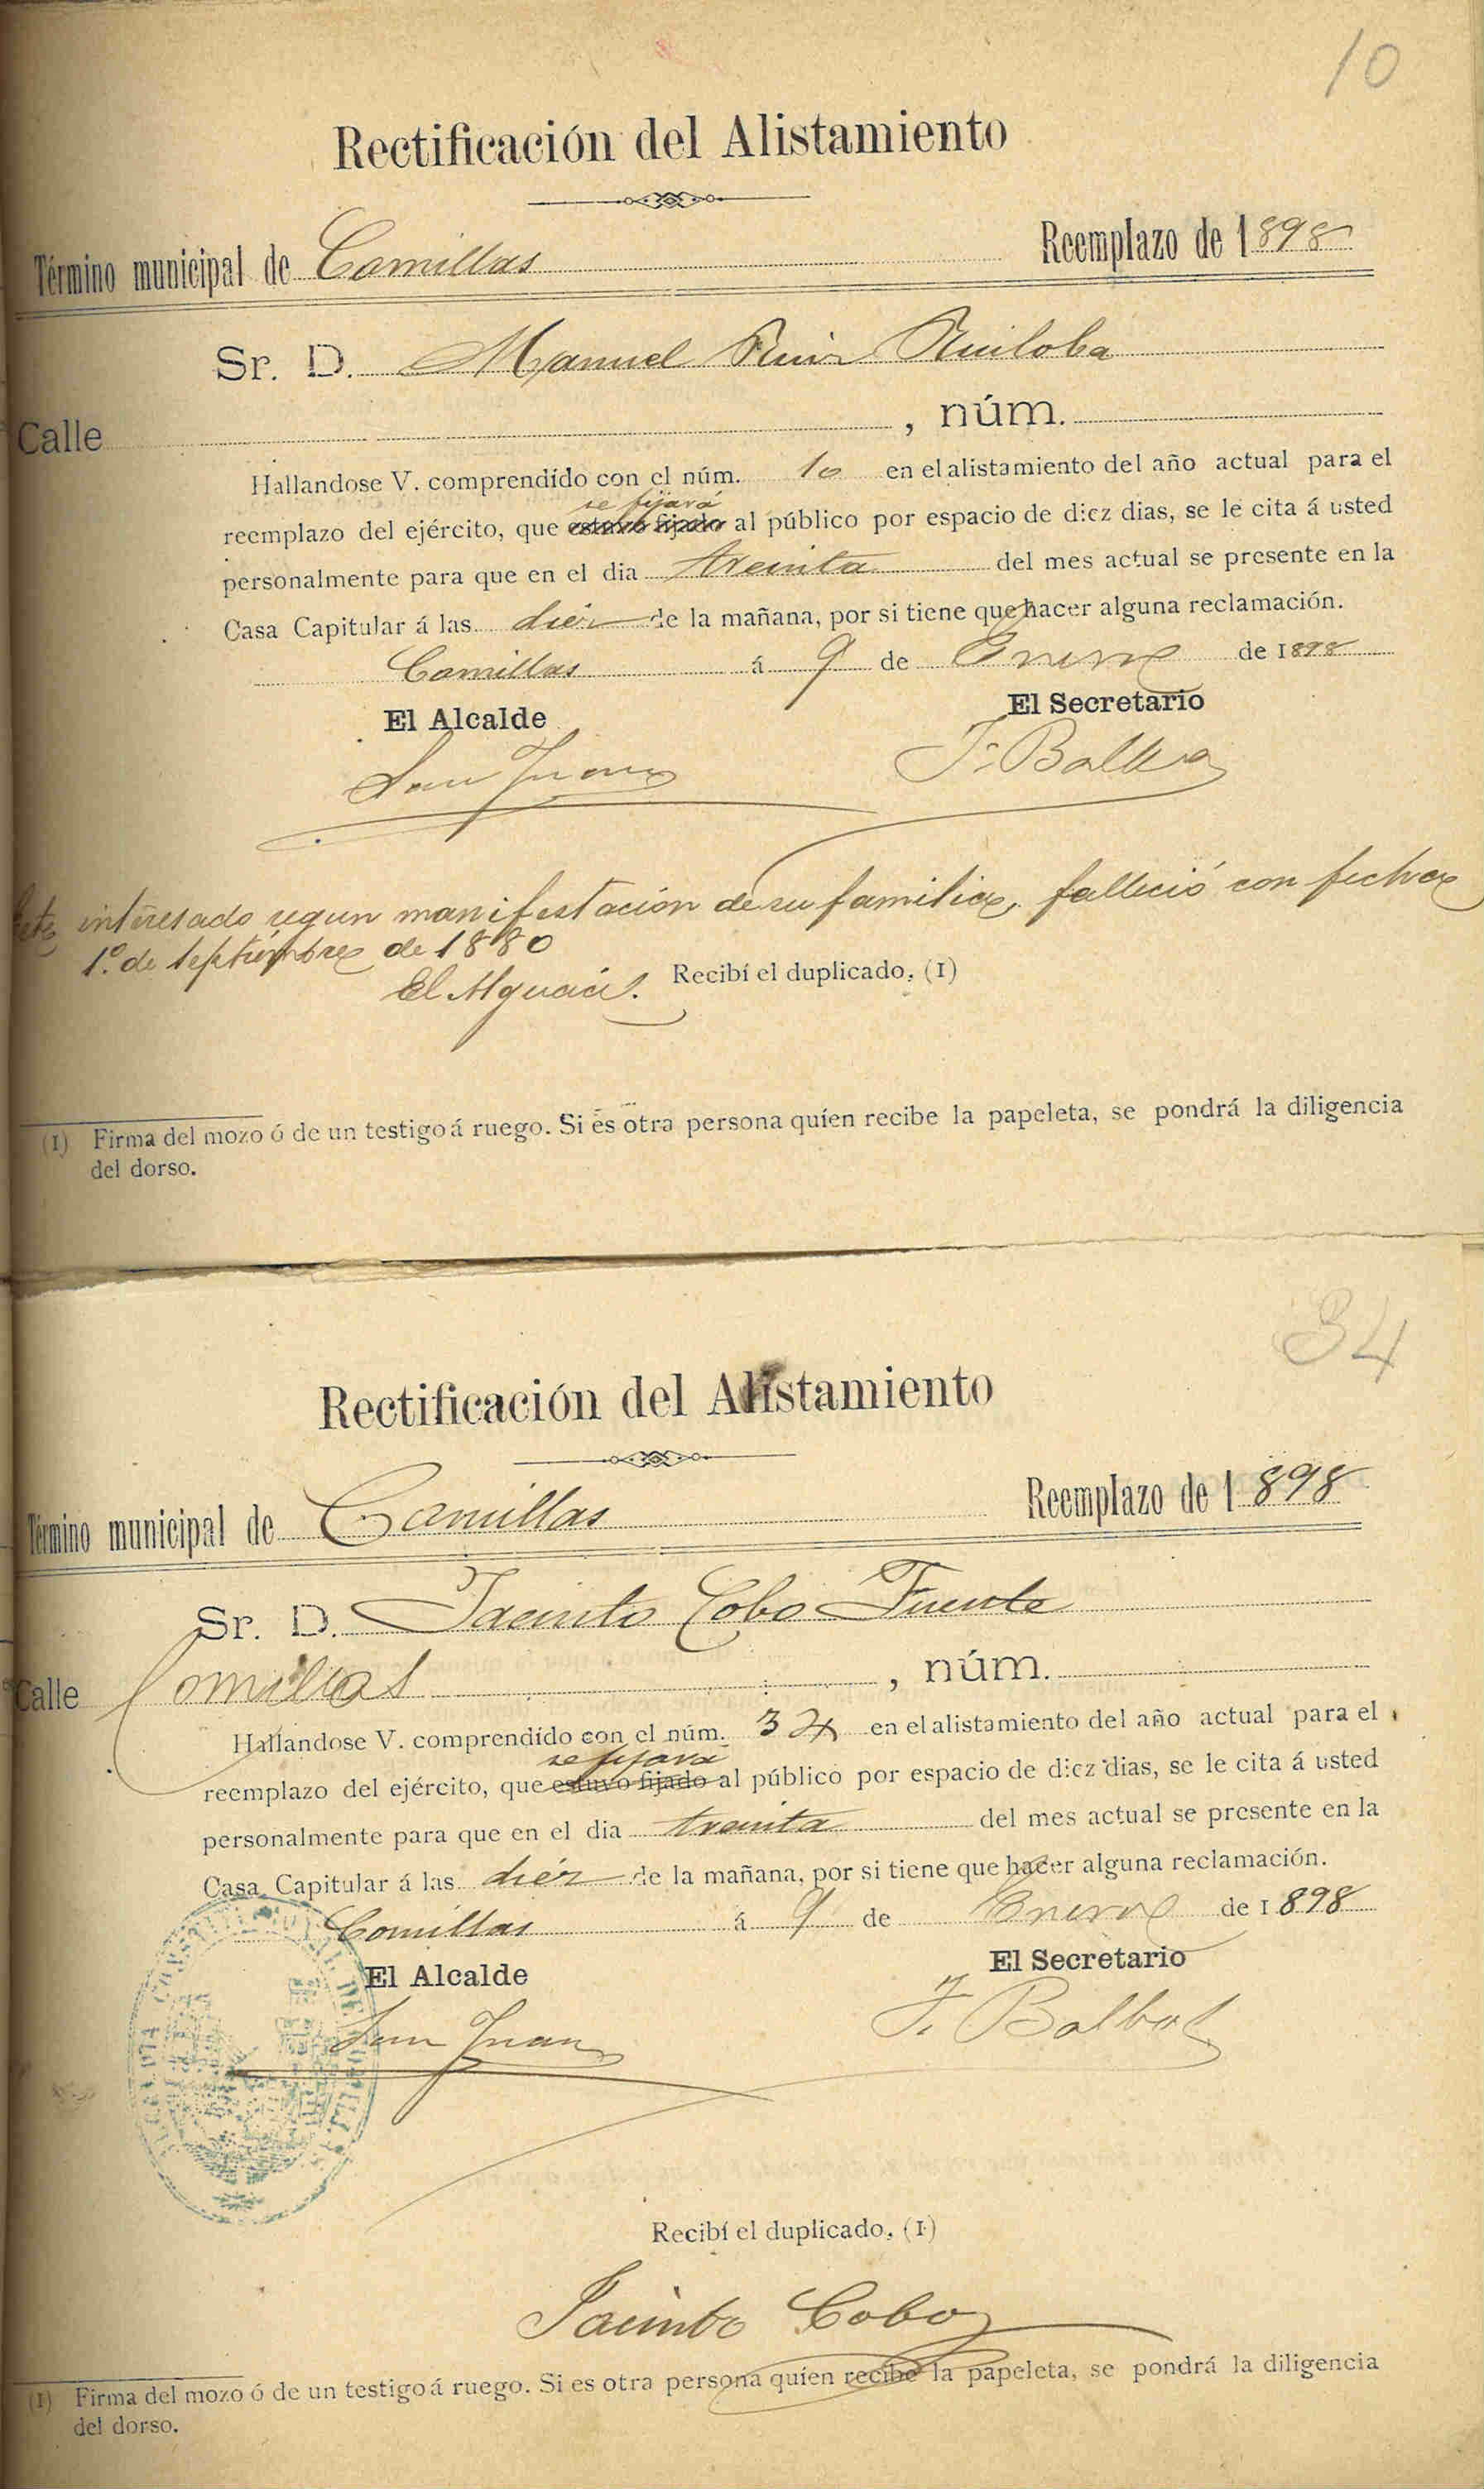 10
Rectificación del Alistamiento
Término municipal de Comillas Reemplazo de 1898
Sr. D. Manuel Ruiz Ruiloba
Calle , núm.
Hallandose V. comprendído con el núm. 10 en el alistamiento del año actual para el
se fijará
reemplazo del ejército, que estuvo fijado al público por espacio de diez dias, se le cita á usted
personalmente para que en el dia treinta del mes actual se presente en la
Casa Capitular á las diez de la mañana, por si tiene que hacer alguna reclamación.
Comillas á 9 de Enero de 1898
El Alcalde El Secretario
San Juan F. Balbas
Este interesado segun manifestación de su familia, falleció con fecha
1.º de septiembre de 1880
El Alguacil.
Recibí el duplicado, (1)
(1) Firma del mozo ó de un testigo á ruego. Si es otra persona quíen recibe la papeleta, se pondrá la diligencia
del dorso.
34
Rectificación del Alistamiento
Término municipal de Comillas Reemplazo de 1898
Sr. D. Jacinto Cobo Fuente
Calle Comillas , núm.
Hallandose V. comprendído con el núm. 34 en el alistamiento del año actual para el
se fijará
reemplazo del ejército, que estuvo fijado al público por espacio de diez dias, se le cita á usted
personalmente para que en el dia treinta del mes actual se presente en la
Casa Capitular á las diez de la mañana, por si tiene que hacer alguna reclamación.
Comillas á 9 de Enero de 1898
El Alcalde El Secretario
San Juan F. Balbas
Recibí el duplicado, (1)
Jacinto Cobo
(1) Firma del mozo ó de un testigo á ruego. Si es otra persona quíen recibe la papeleta, se pondrá la diligencia
del dorso.